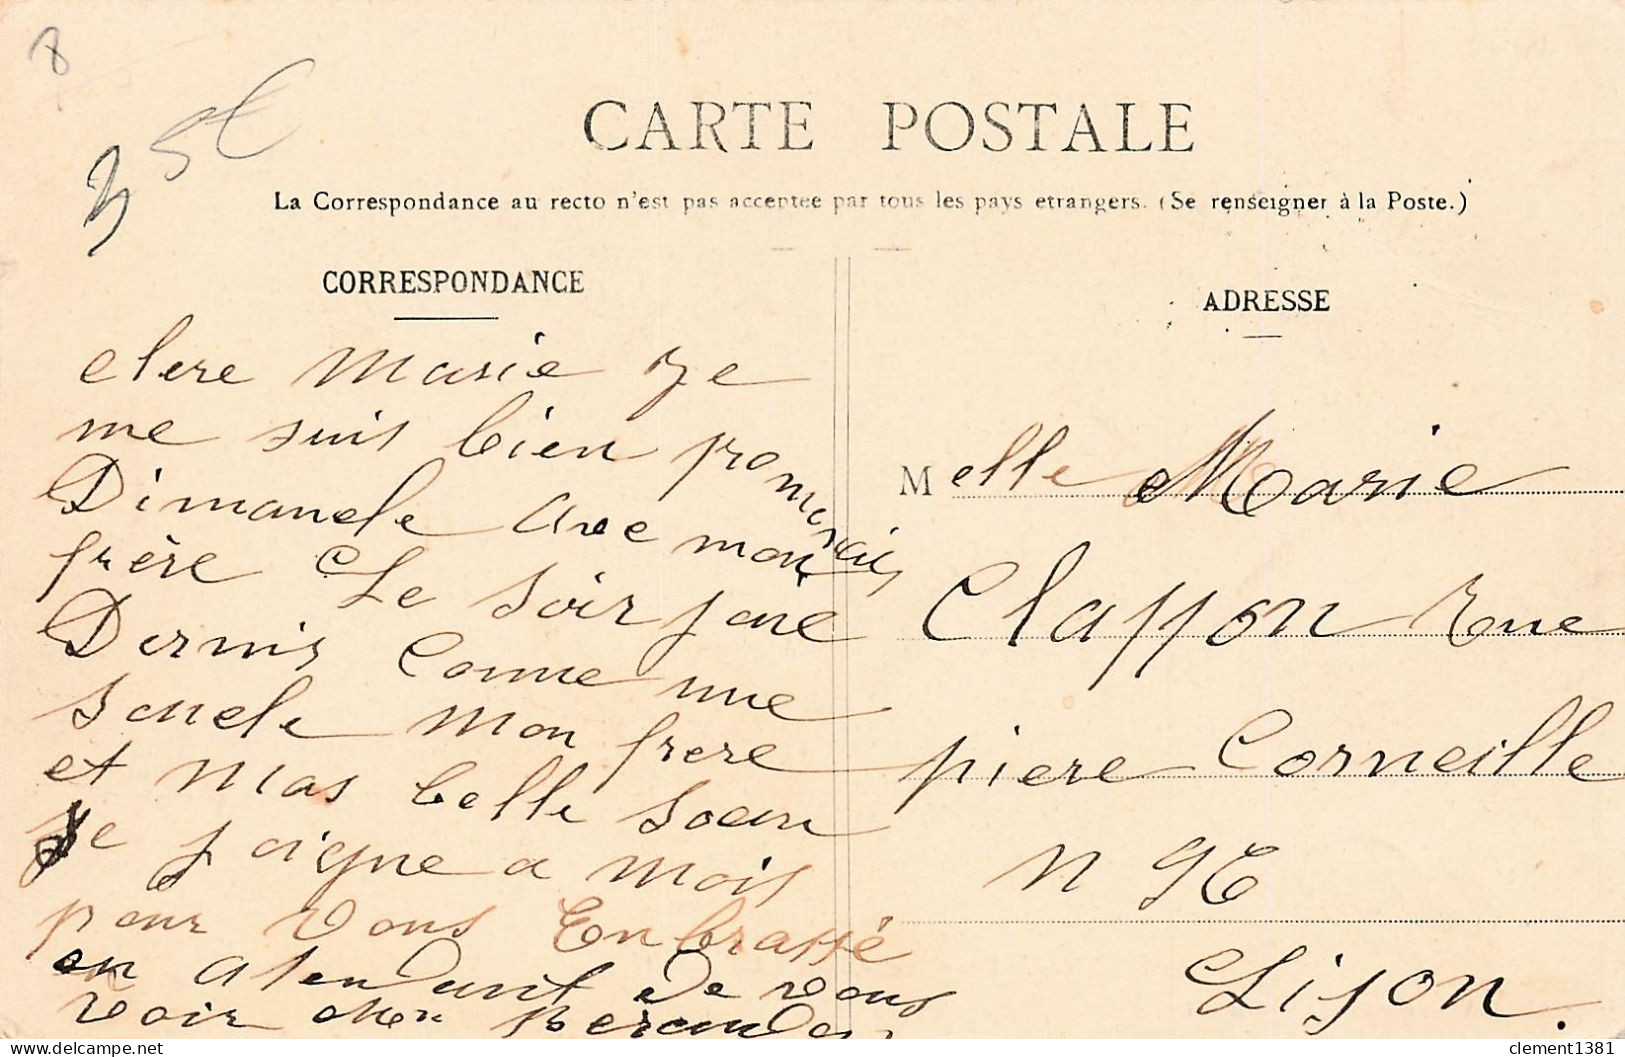 8
35€
CARTE POSTALE
La Correspondance au recto n'est pas acceptée par tous les pays étrangers. (Se renseigner à la Poste.)
CORRESPONDANCE
ADRESSE
chere Marie Je
me suis bien promener
Dimanche Avec mon
frère Le Soir jave
Dormis Comme une
Souche Mon frere
et Mas belle Soeur
Se joigne a Mois
pour Vous Enbrassé
en Atendant de vous
Voir
Melle Marie
Clappon Rue
piere Corneille
n 96
Liyon.
clement1381